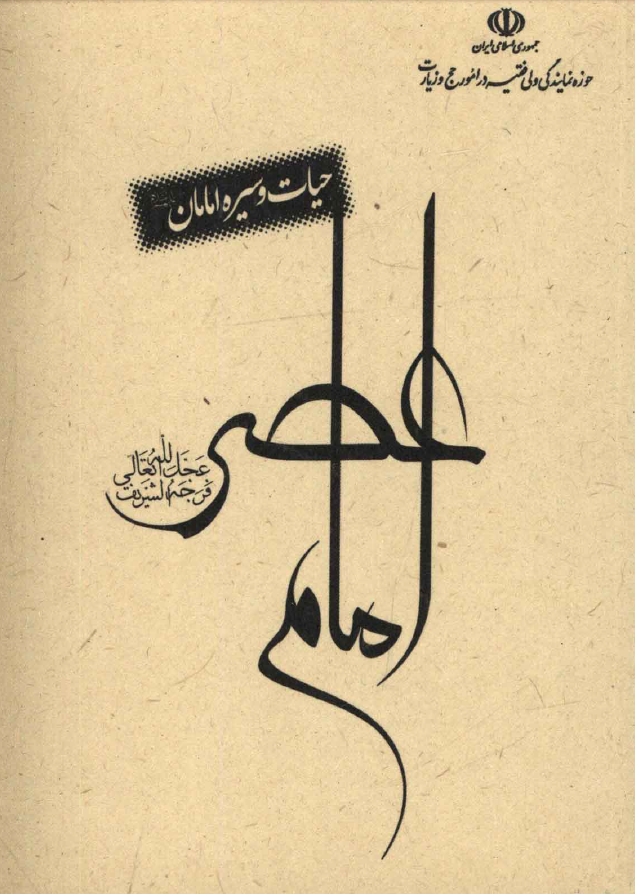 جمهوری اسلامی ایران
حوزه نمایندگی ولی فقیه در امور حج و زیارت
حیات و سیره امامان
امام عصر
عَجَّلَ اللهُ تَعَالیٰ
فَرَجَهُ الشَّرِيف